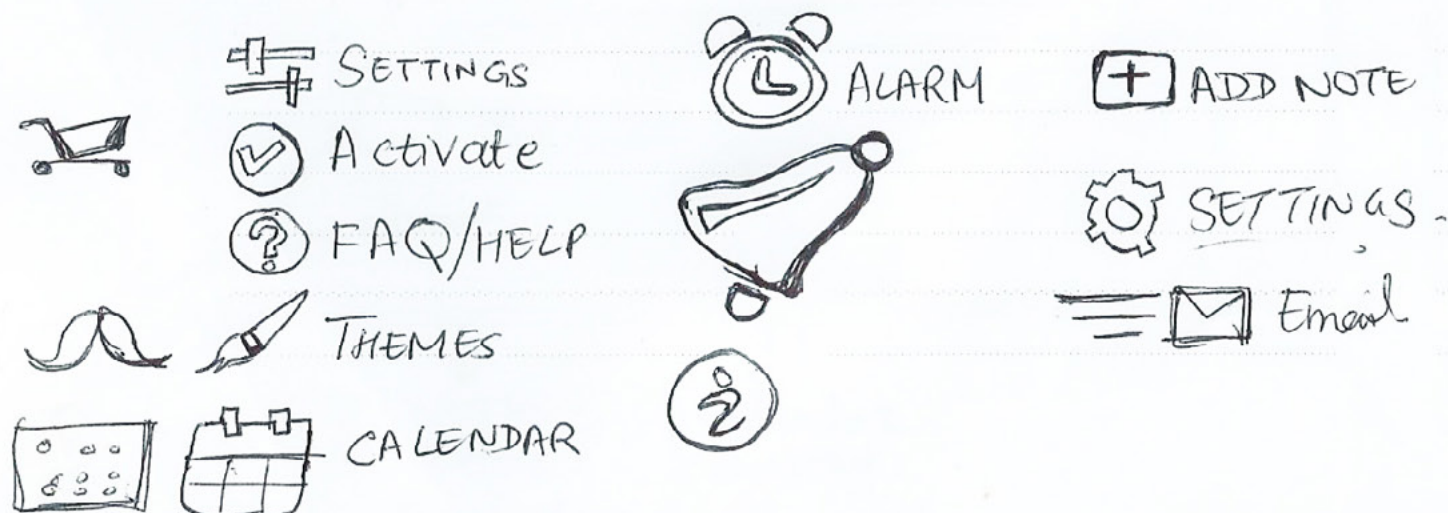 SETTINGS
Activate
FAQ/HELP
THEMES
CALENDAR
ALARM
ADD NOTE
SETTINGS
Email